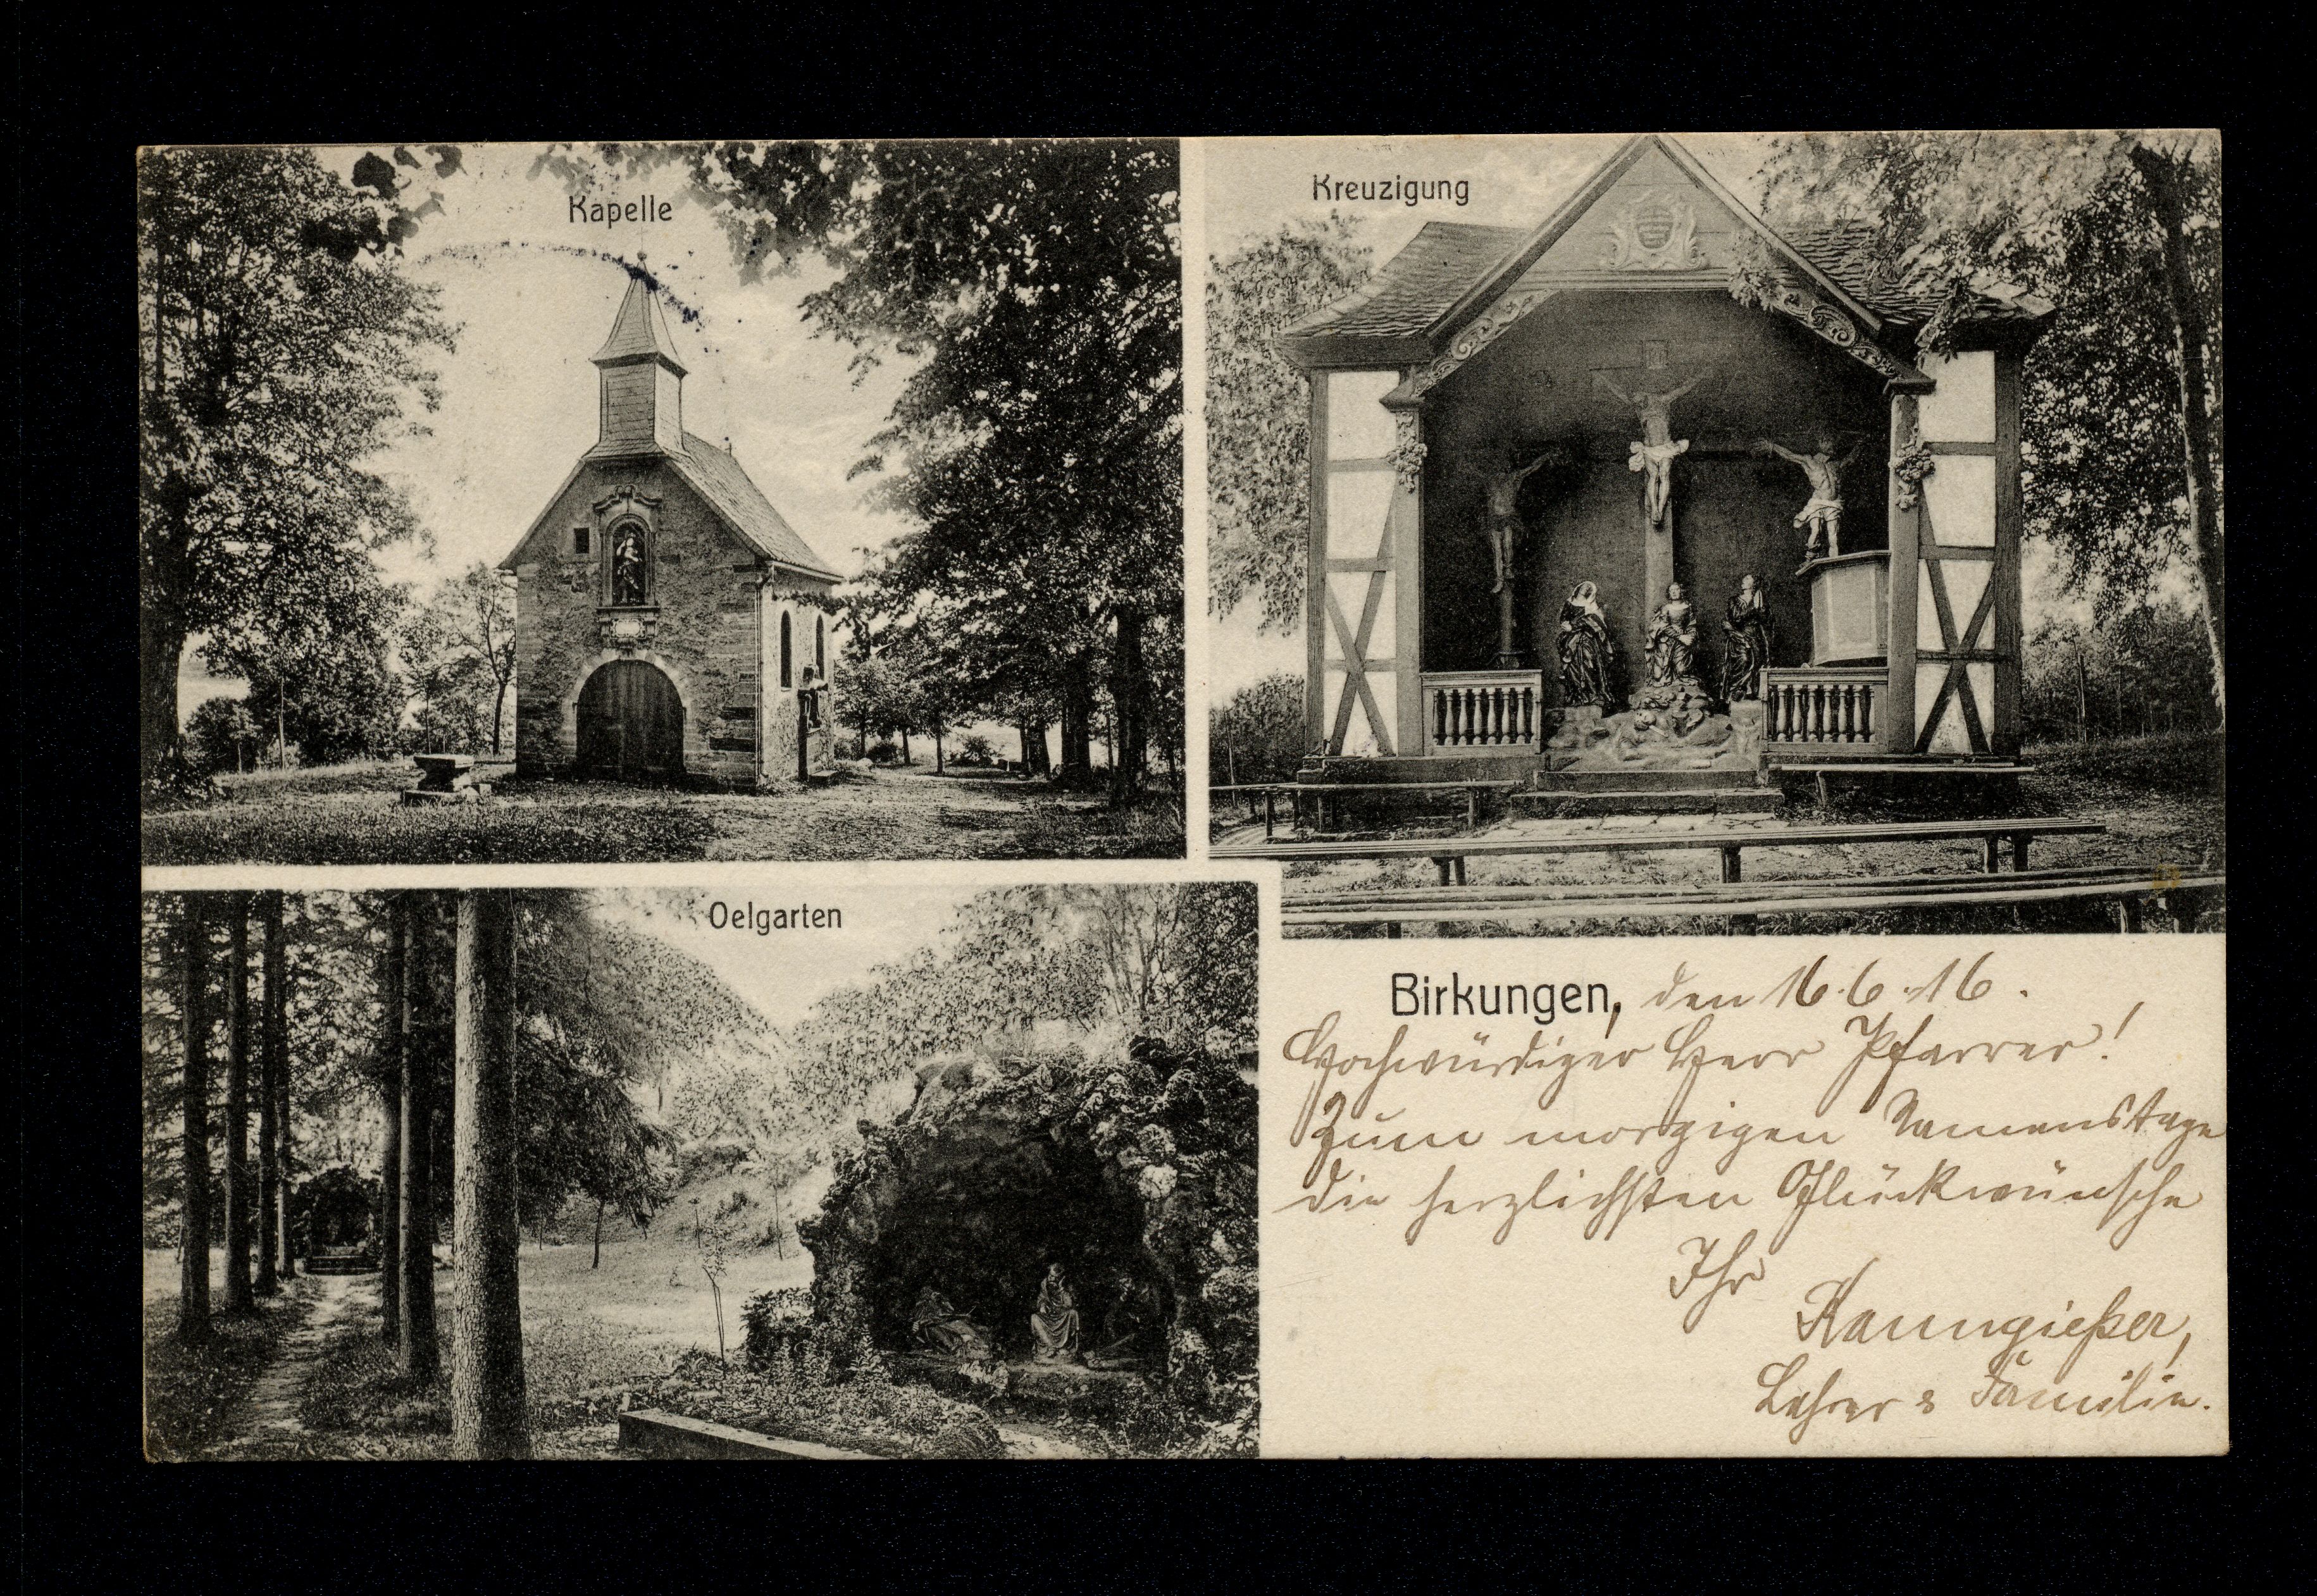 Kapelle
Kreuzigung
Oelgarten
Birkungen, den 16.6.16.
Hochwürdiger Herr Pfarrer!
Zum morgigen Namenstage
die herzlichsten Glückwünsche
Ihr
Kanngießer,
Lehrer & Familie.